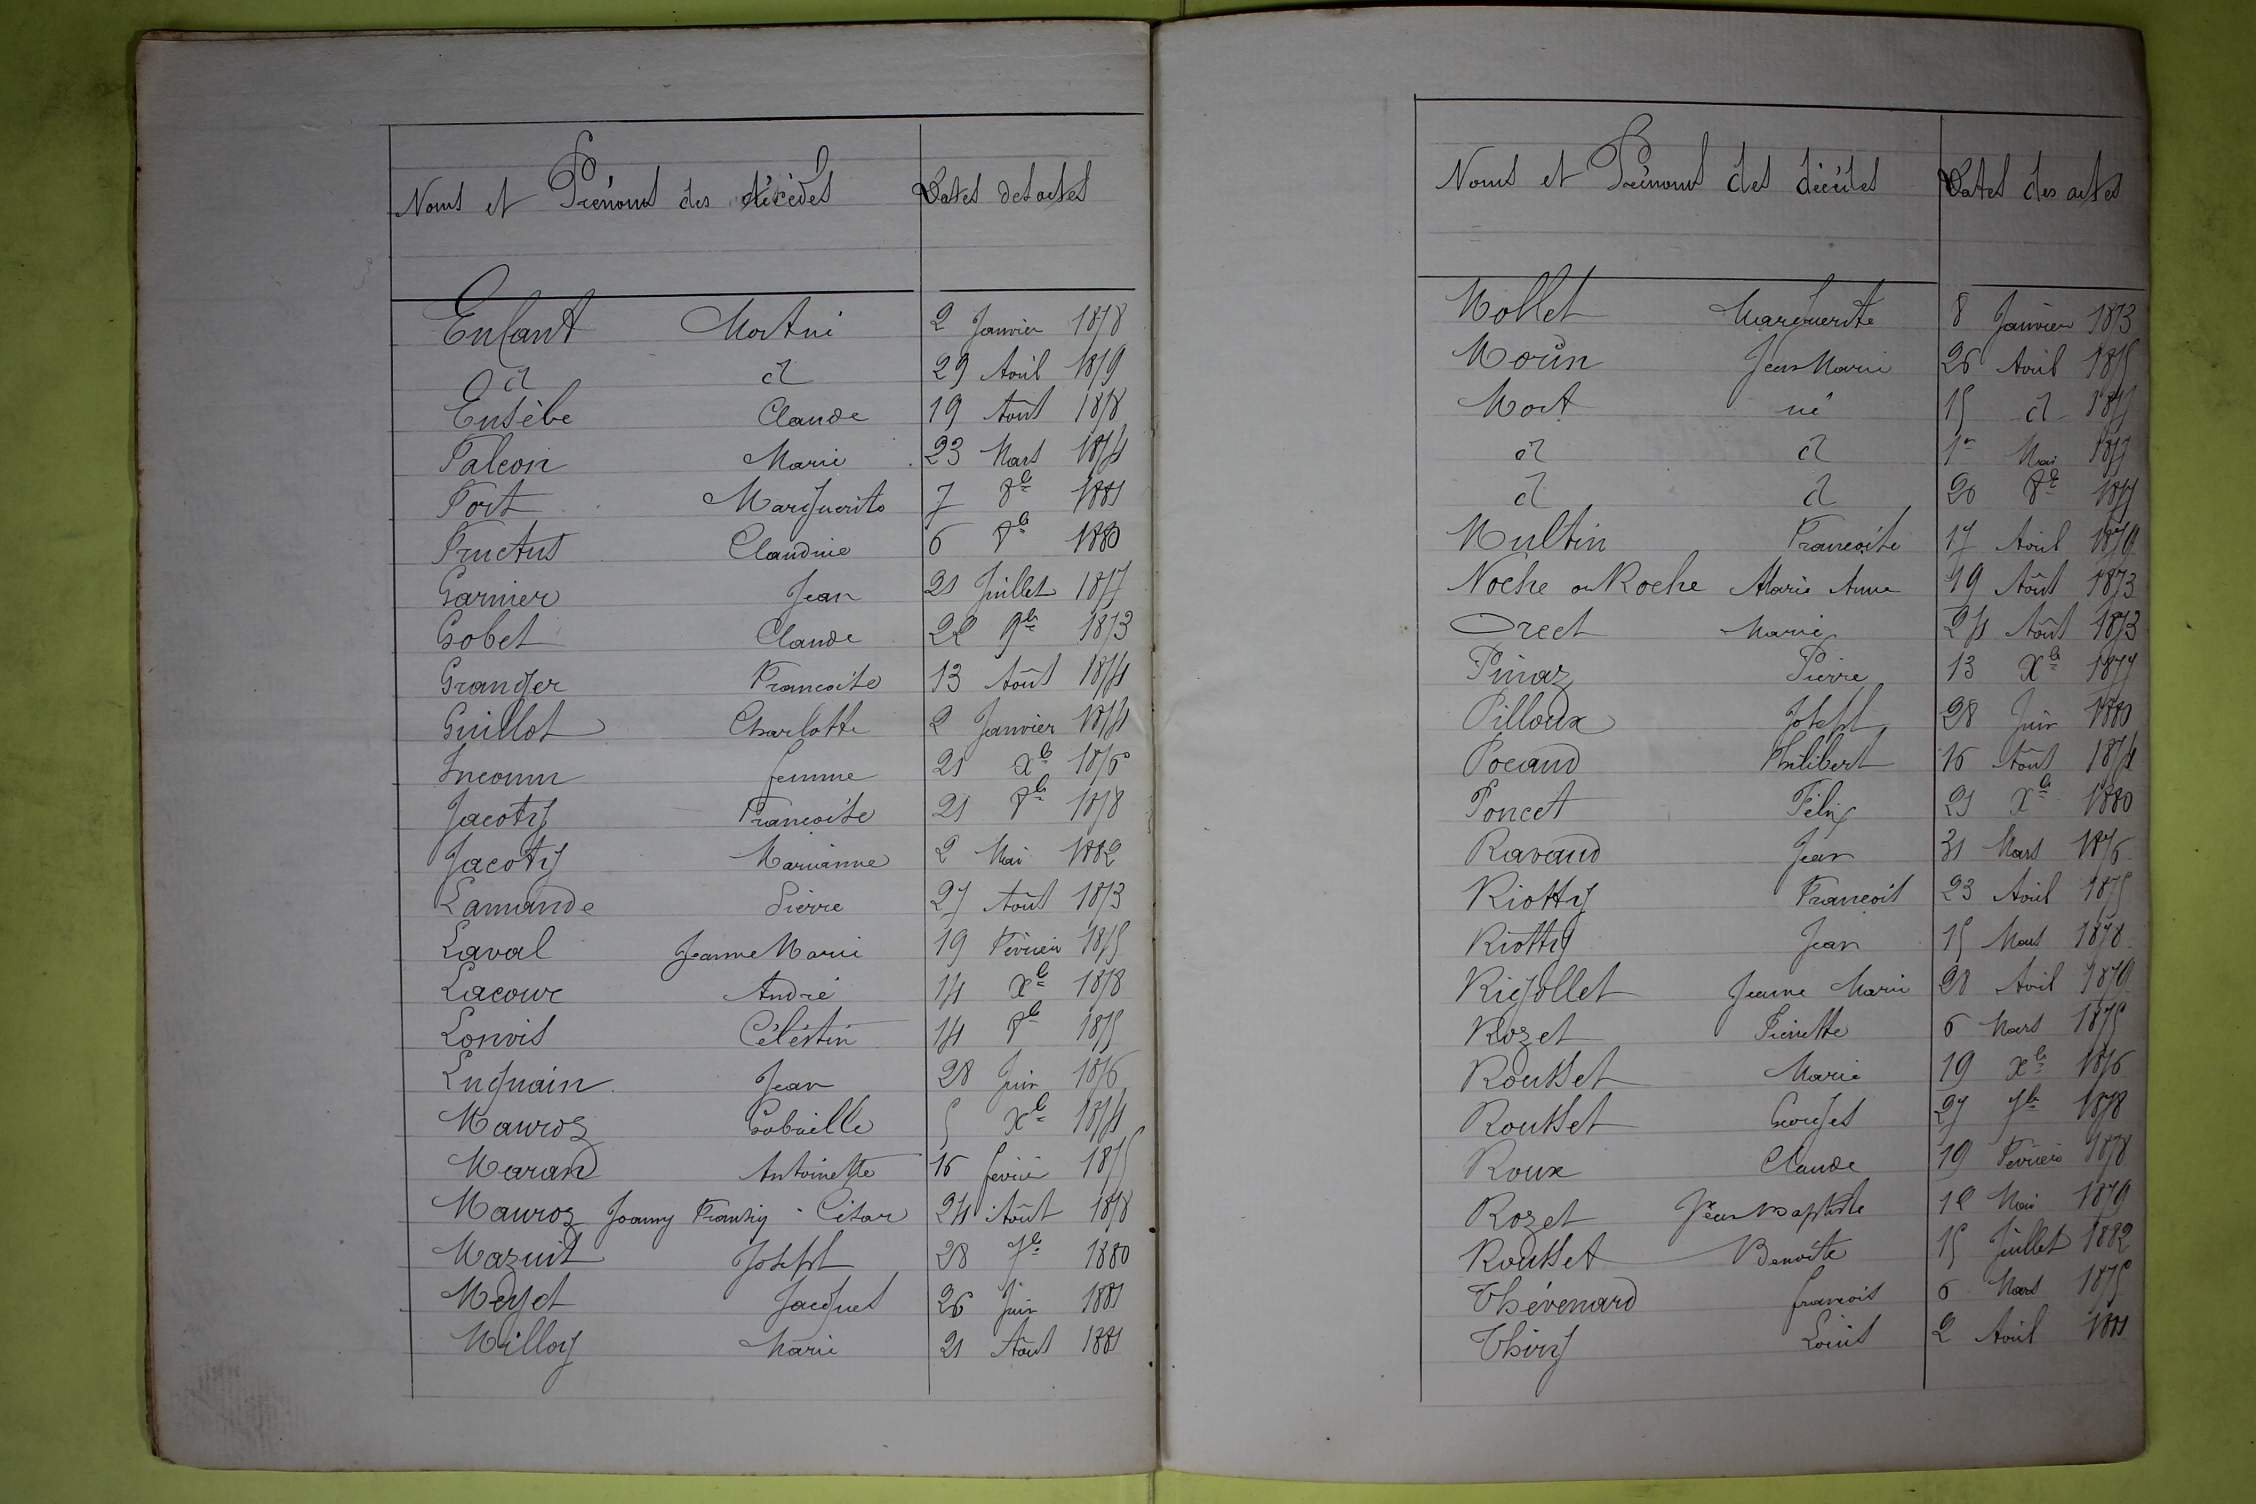 Noms et Prénoms des décédés Dates des actes
Enfant Mort né 2 Janvier 1878
d d 29 Avril 1879
Eusèbe Claude 19 Août 1878
Falcon Marie 23 Mars 1874
Fort Marguerite 7 8bre 1881
Fructus Claudine 6 8bre 1880
Garnier Jean 21 Juillet 1877
Gobet Claude 22 9bre 1873
Granger Françoise 13 Août 1874
Guillot Charlotte 2 Janvier 1874
Inconnu femme 21 Xbre 1876
Jacoty Françoise 21 8bre 1878
Jacoty Marianne 2 Mai 1882
Lamande Pierre 27 Août 1873
Laval Jeanne Marie 19 Février 1875
Lacour André 14 Xbre 1878
Lonvis Célestin 14 8bre 1875
Luquain Jean 28 Juin 1876
Mauroz Gabrielle 5 Xbre 1874
Marand Antoinette 16 février 1875
Mauroz Joanny Frantzy César 24 Août 1878
Mazuit Joseph 28 7bre 1880
Meyet Jacques 26 Juin 1881
Milloy Marie 21 Août 1881
Noms et Prénoms des décédés Dates des actes
Mollet Marguerite 8 Janvier 1873
Morin Jean Marie 26 Avril 1875
Mort né 15 d 1877
d d 1er Mai 1877
d d 20 8bre 1877
Multin Françoise 17 Avril 1879
Noche ou Roche Marie Anne 19 Août 1873
Orcet Marie 24 Août 1873
Pinaz Pierre 13 Xbre 1877
Pilloux Joseph 28 Juin 1880
Pocaud Philibert 16 Août 1874
Poncet Félix 21 Xbre 1880
Ravaud Jean 31 Mars 1876
Riotty François 23 Avril 1875
Riotty Jean 15 Mars 1878
Rigollet Jeanne Marie 28 Avril 1879
Rozet Pierrette 6 Mars 1875
Rousset Marie 19 Xbre 1876
Rousset Georges 27 7bre 1878
Roux Claude 19 Février 1878
Rozet Jean Baptiste 12 Mai 1879
Rousset Benoîte 15 Juillet 1882
Thévenard françois 6 Mars 1875
Thivy Louis 2 Avril 1881